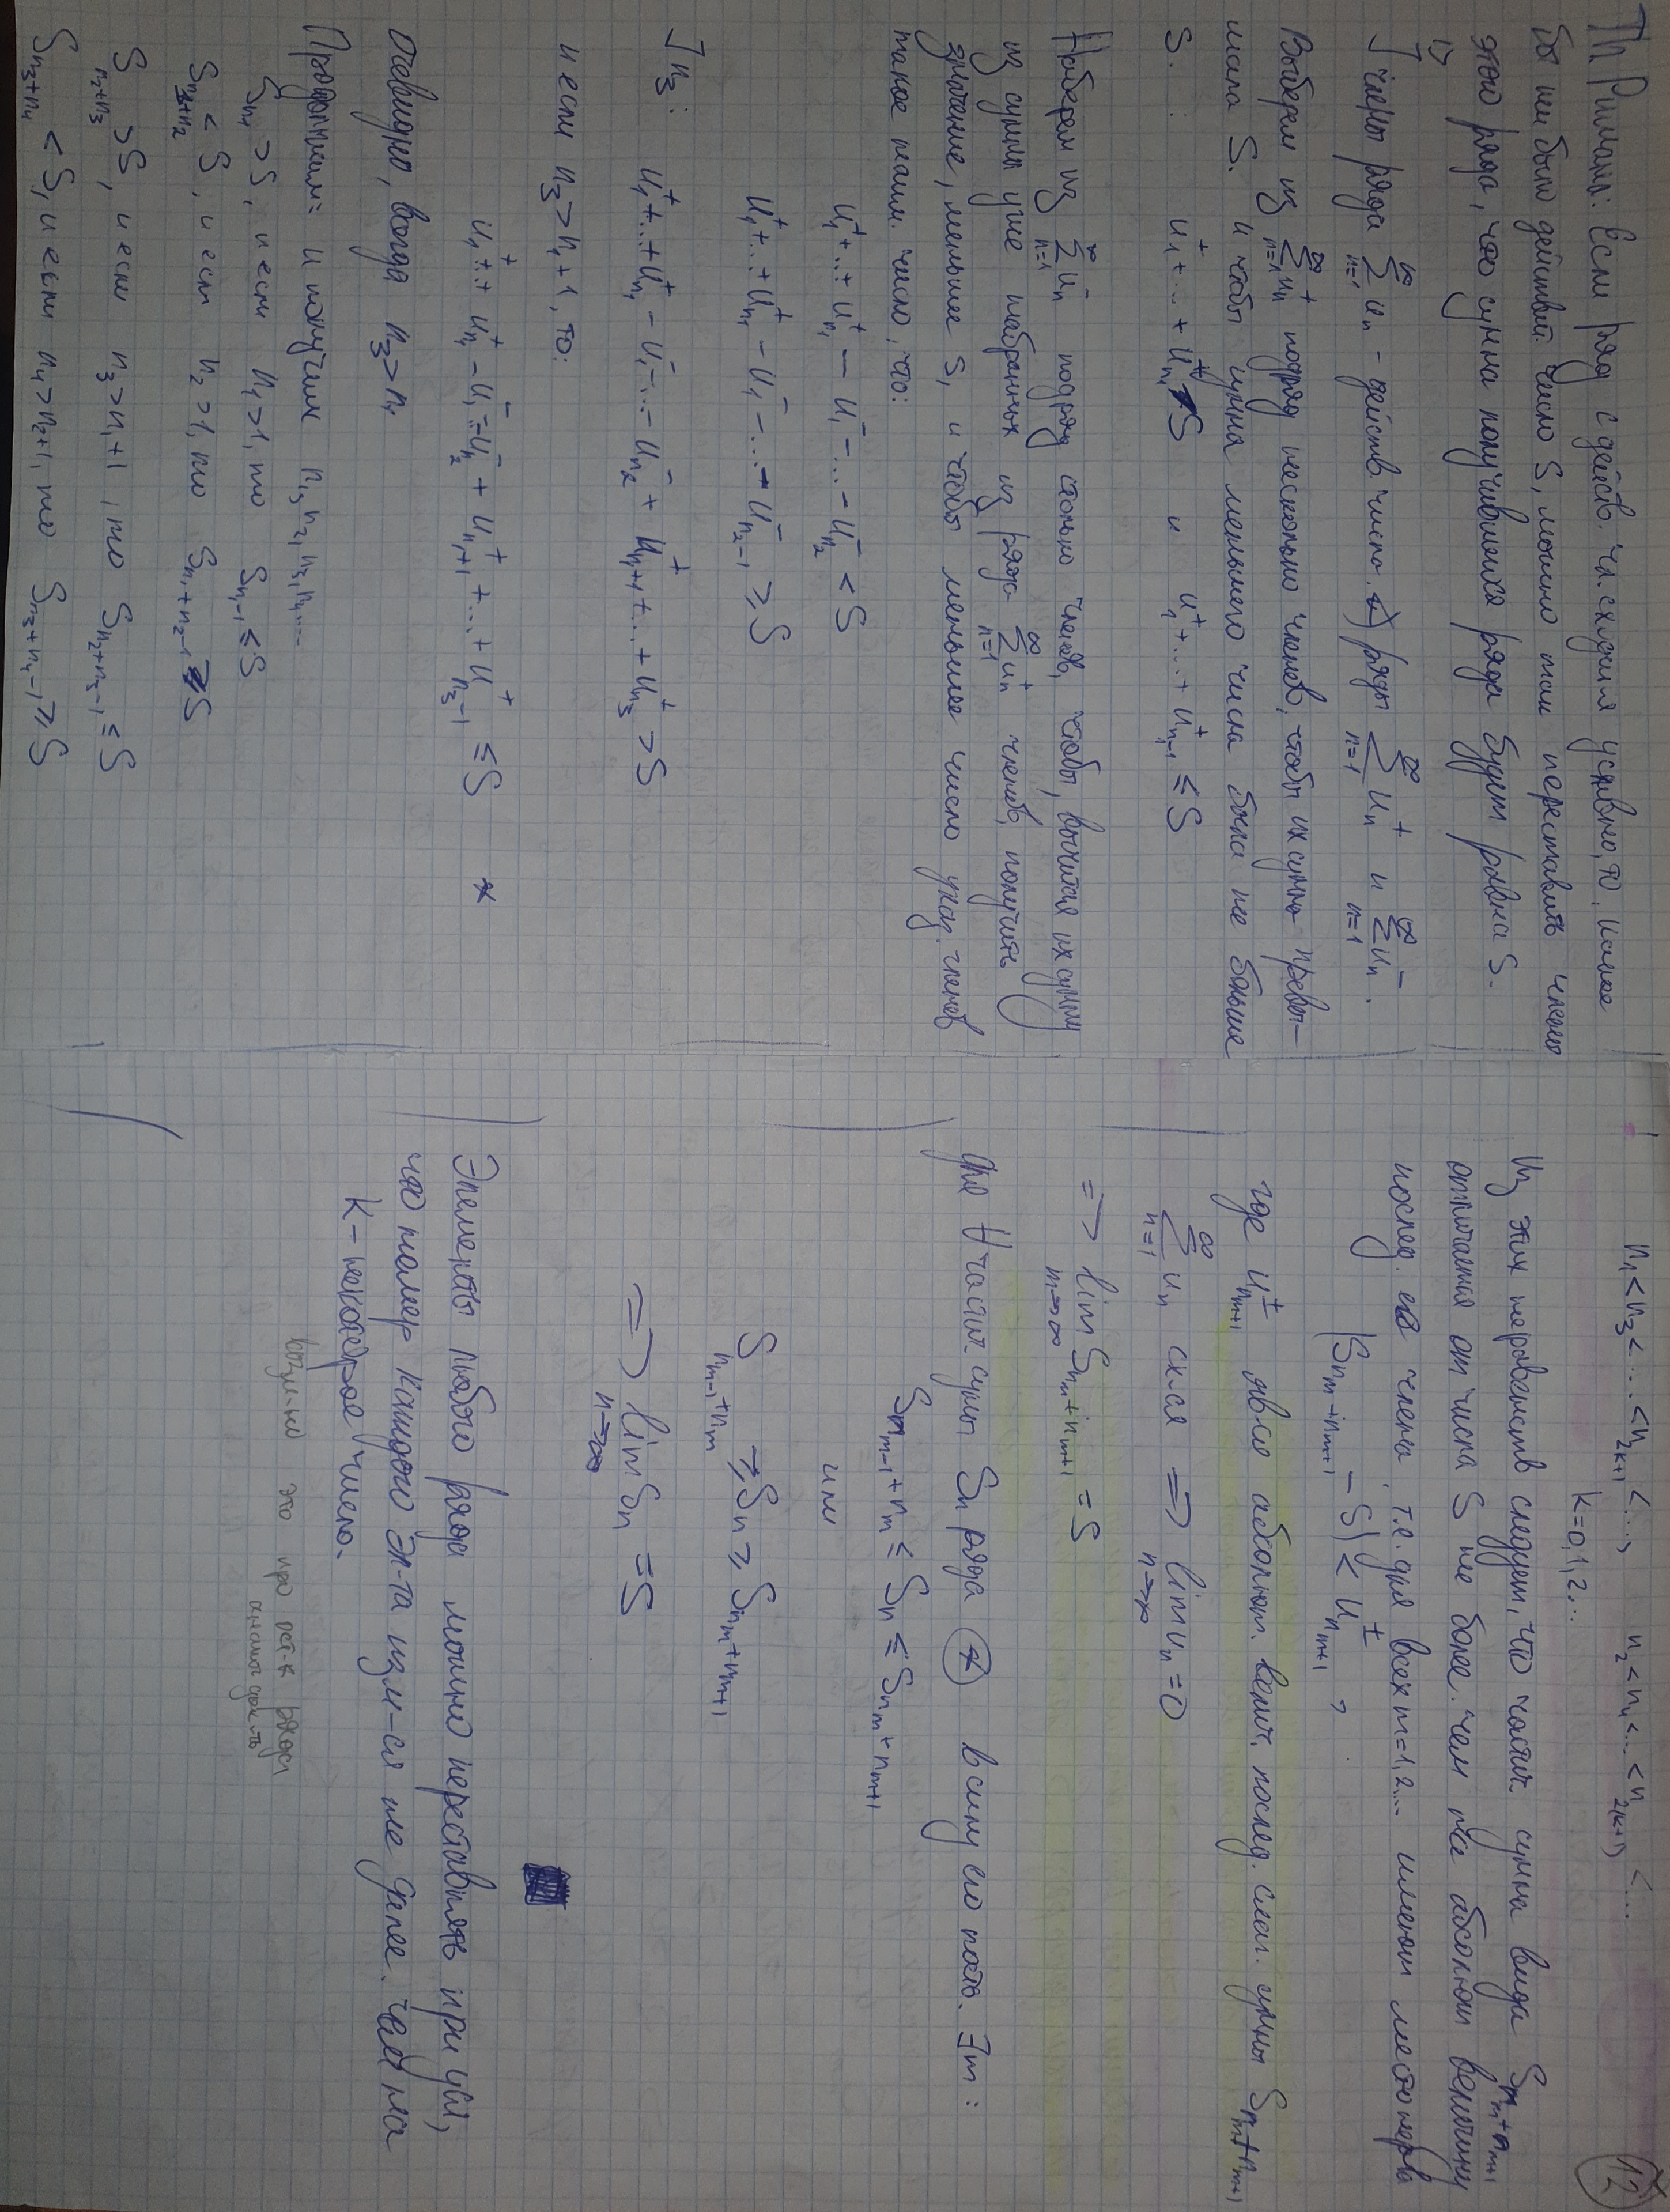 Th Римана: Если ряд с действ. чл. сходится условно, то, какое
бы ни было действит. число S, можно так переставить члены
этого ряда, что сумма получившегося ряда будет равна S.
▷
] члены ряда ∑_{n=1}^{∞} u_n - действ. числа. ряды ∑_{n=1}^{∞} u_n^+ и ∑_{n=1}^{∞} u_n^-.
Выберем из ∑_{n=1}^{∞} u_n^+ подряд несколько членов, чтобы их сумма превы-
шала S. и чтобы сумма меньшего числа была не больше
S. : u_1^+ + ... + u_{n_1}^+ > S и u_1^+ + ... + u_{n_1-1}^+ ≤ S
Наберем из ∑_{n=1}^{∞} u_n^- подряд столько членов, чтобы, вычитая их сумму
из суммы уже набранных из ряда ∑_{n=1}^{∞} u_n^+ членов, получить
значение, меньшее S, и чтобы меньшее число указ. членов
такое наим. число, что:
u_1^+ + ... + u_{n_1}^+ - u_1^- - ... - u_{n_2}^- < S
u_1^+ + ... + u_{n_1}^+ - u_1^- - ... - u_{n_2-1}^- ≥ S
] n_3: u_1^+ + ... + u_{n_1}^+ - u_1^- - ... - u_{n_2}^- + u_{n_1+1}^+ + ... + u_{n_3}^+ > S
и если n_3 > n_1 + 1, то:
u_1^+ + ... + u_{n_1}^+ - u_1^- - ... - u_{n_2}^- + u_{n_1+1}^+ + ... + u_{n_3-1}^+ ≤ S *
Очевидно, всегда n_3 > n_1
Продолжим и получим n_1, n_2, n_3, n_4, ...
S_{n_1} > S, и если n_1 > 1, то S_{n_1-1} ≤ S
S_{n_1+n_2} < S, и если n_2 > 1, то S_{n_1+n_2-1} ≥ S
S_{n_2+n_3} > S, и если n_3 > n_1 + 1, то S_{n_2+n_3-1} ≤ S
S_{n_3+n_4} < S, и если n_4 > n_2 + 1, то S_{n_3+n_4-1} ≥ S
12
n_1 < n_3 < ... < n_{2k+1} < ..., n_2 < n_4 < ... < n_{2(k+1)} < ...
k = 0, 1, 2...
Из этих неравенств следует, что частич. сумма вида S_{n_m+n_{m+1}}
отличается от числа S не более чем на абсолют. величину
послед. её члена, т.е. для всех m = 1, 2... имеют место нерав
|S_{n_m+n_{m+1}} - S| < u_{n_{m+1}}^±,
где u_{n_{m+1}}^± явл-ся абсолют. велич. послед. слаг. суммы S_{n_m+n_{m+1}}
∑_{n=1}^{∞} u_n сх-ся => lim_{n→∞} u_n = 0
=> lim_{m→∞} S_{n_m+n_{m+1}} = S
для ∀ частич. суммы S_n ряда (*) в силу его постр. ∃m:
S_{n_{m-1}+n_m} ≤ S_n ≤ S_{n_m+n_{m+1}}
или
S_{n_{m-1}+n_m} ≥ S_n ≥ S_{n_m+n_{m+1}}
=> lim_{n→∞} S_n = S
Элементы любого ряда можно переставлять при усл.,
что номер каждого эл-та изм-ся не далее чем на
K - некоторое число.
это про рст-к ряды